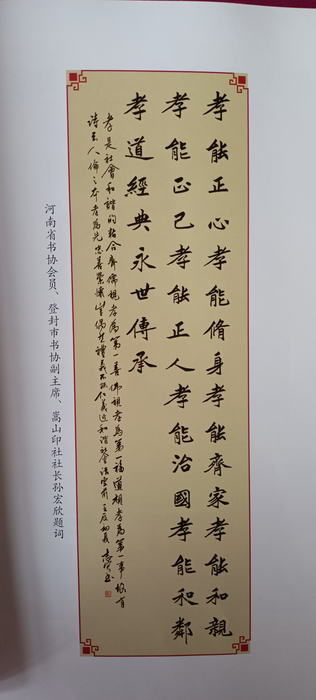 孝能正心孝能脩身孝能齊家孝能和親
孝能正己孝能正人孝能治國孝能和鄰
孝道經典永世傳承
孝是社會和諧的合劑儒孝為第一善佛孝為第一福道孝為第一事故有
詩云人倫之本孝為先忠善
河南省书协会员、登封市书协副主席、嵩山印社社长孙宏欣题词